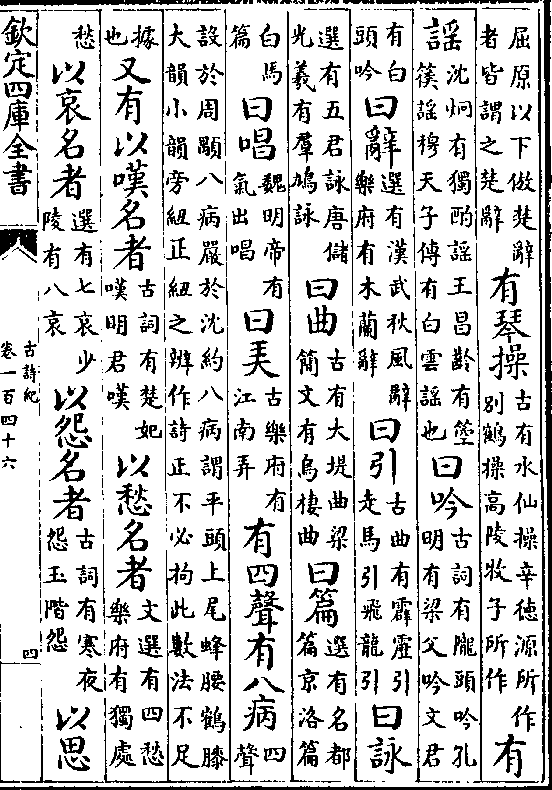 屈原以下倣楚辭者皆謂之楚辭有琴操古有水仙操辛徳源所作别鶴操高陵牧子所作有
謡沈炯有獨酌謡王昌齡有箜篌謡穆天子傳有白雲謡也曰吟古詞有隴頭吟孔明有梁父吟文君
有白頭吟曰辭選有漢武秋風辭樂府有木蘭辭曰引古曲有霹靂引走馬引飛龍引曰詠
選有五君詠唐儲光羲有羣鳩詠曰曲古有大堤曲梁簡文有烏棲曲曰篇選有名都篇京洛篇
白馬篇曰唱魏明帝有氣出唱曰弄古樂府有江南弄有四聲有八病四聲
設於周顒八病嚴於沈約八病謂平頭上尾蜂腰鶴膝大韻小韻旁紐正紐之辨作詩正不必拘此數法不足
據也又有以嘆名者古詞有楚妃嘆明君嘆以愁名者文選有四愁樂府有獨處
愁以哀名者選有七哀少陵有八哀以怨名者古詞有寒夜怨玉階怨以思
欽定四庫全書
古詩紀
卷一百四十六
四